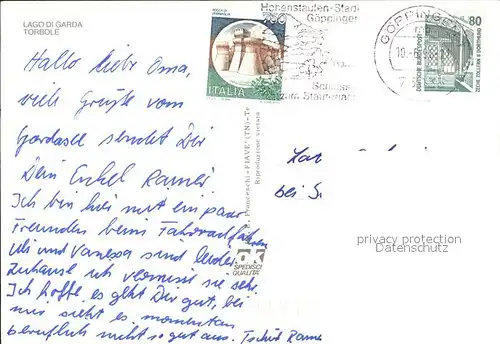 LAGO DI GARDA
TORBOLE
Hallo liebe Oma,
viele Grüße vom
Gardasee sendet Dir
Dein Enkel Rainer.
Ich bin hier mit ein paar
Freunden beim Fahrradfahren
Uli und Vanessa sind leider
Zuhause ich vermisse sie sehr.
Ich hoffe, es geht Dir gut, bei
mir sieht es momentan
beruflich nicht so gut aus. Tschüß
ROCCA DI
750
ITALIA
Hohenstaufen-Stadt
Göppingen
Schloss
zum Stauferland
GÖPPINGEN
80
DEUTSCHE BUNDESPOST
ZECHE ZOLLERN II DORTMUND
FIAVE' (TN)
Riproduzione vietata
OK
SPEDISCI
QUALITA'
bei
privacy protection
Datenschutz